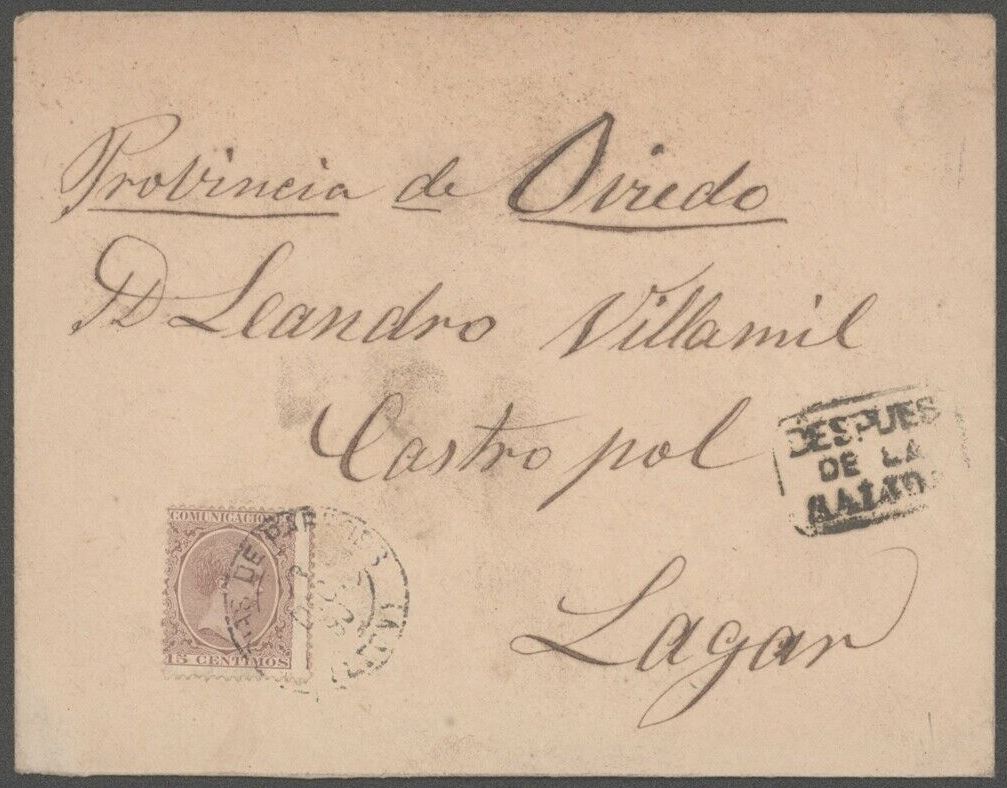 Provincia de Oviedo
D Leandro Villamil
Castropol
DESPUES
DE LA
Lagar
COMUNICACIO
DE
15 CENTIMOS